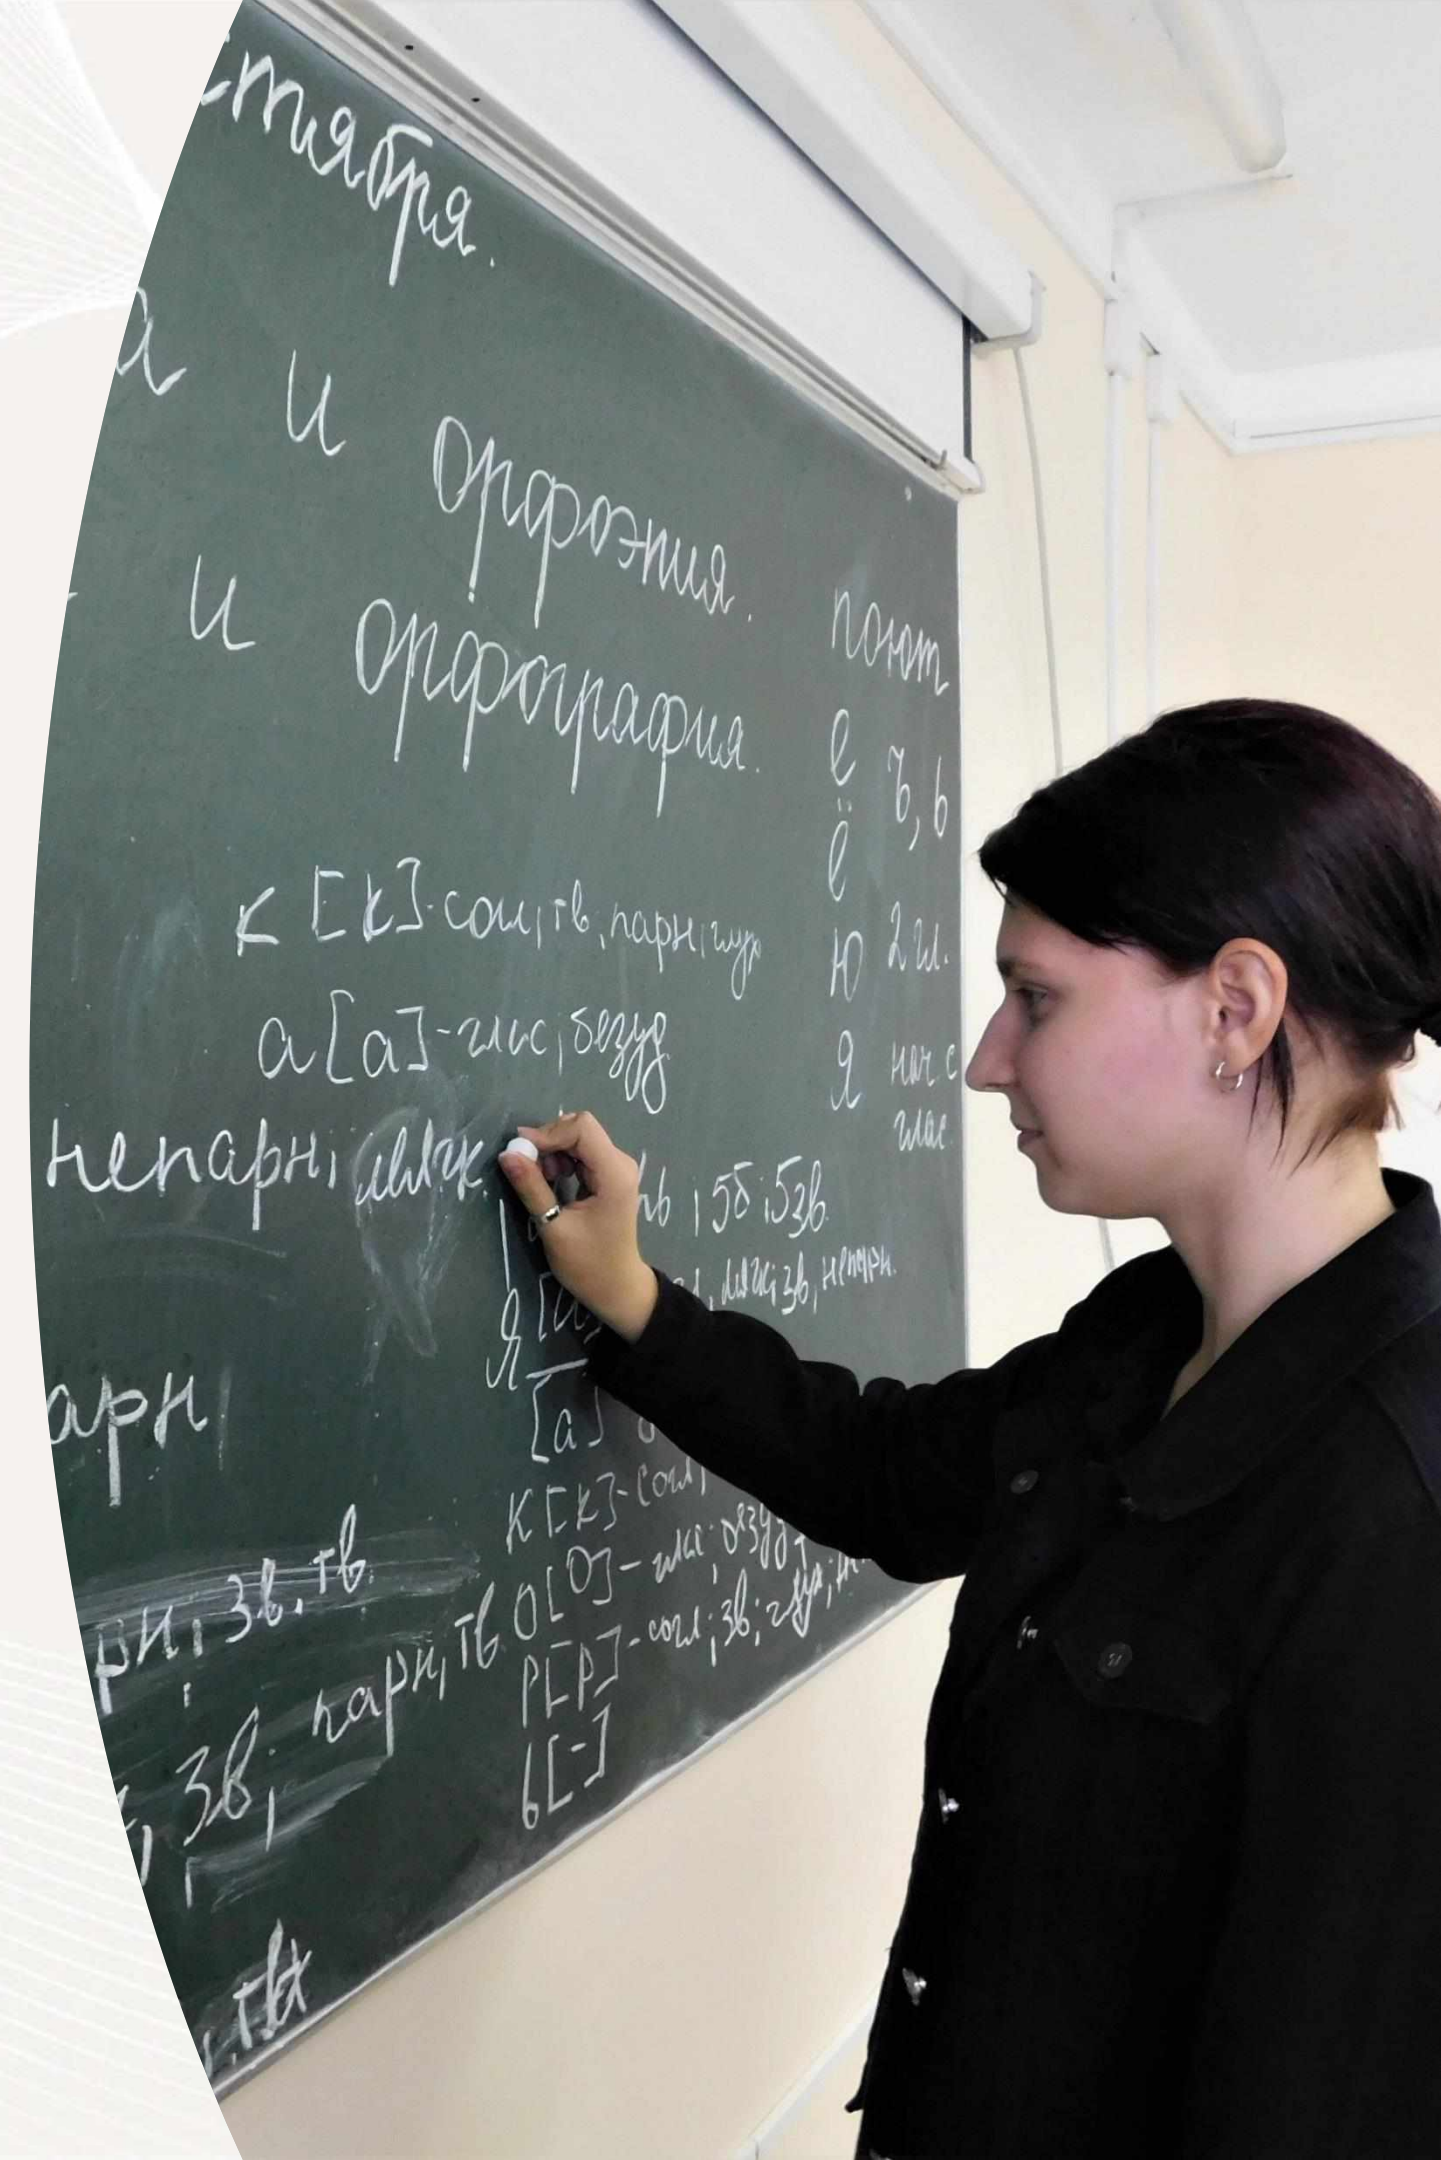 стября.
а и орфоэпия.
и орфография.
поют
е ъ, ь
ё
ю 2 гл.
я нач с
глас.
к [к]-согл, тв, парн, глух
а [а]-глас, безуд.
непарн, мягк.
нь, 5б; 5зв.
я [й] мягк; зв, непарн.
[а]
к [к]-согл,
о [о]-глас; безуд
р [р]-согл; зв;
ь [-]
арн
рн, зв. тв.
зв; парн, тв.